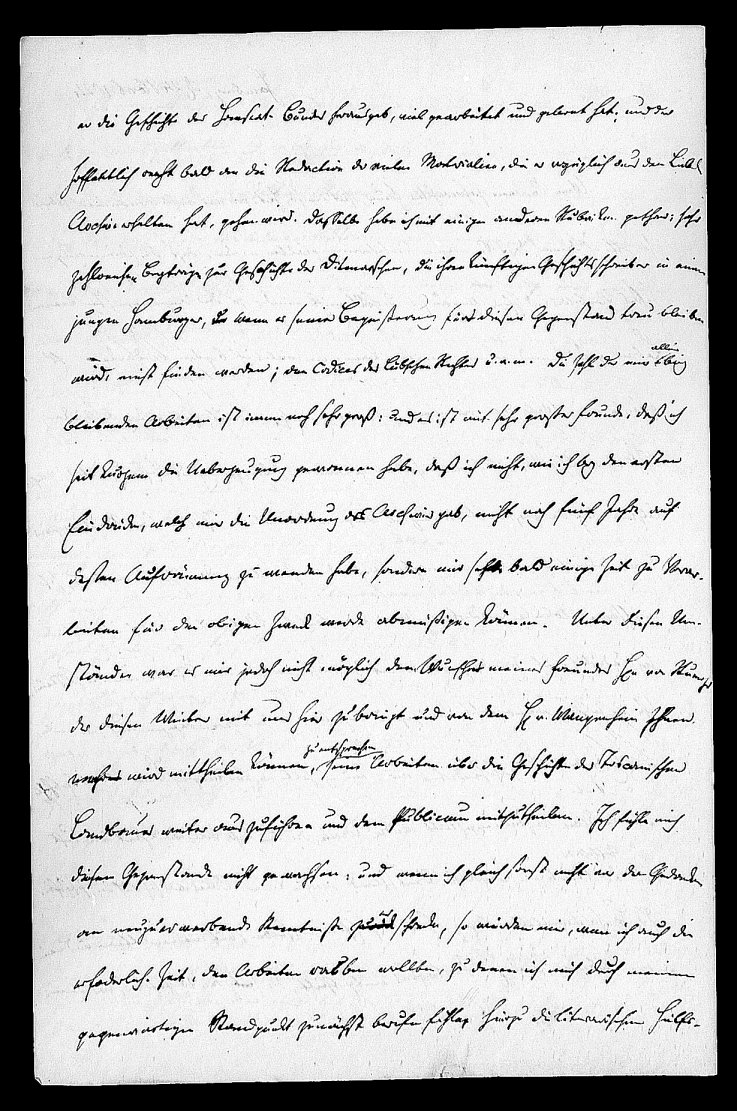 er die Geschichte des Hanseat. Bundes herausgab, viel gearbeitet und gelernt hat, und der
hoffentlich recht bald an die Redaction der vielen Materialien, die er vorzüglich aus dem Lüb.
Archiv erhalten hat, gehen wird. Dasselbe habe ich mit einigen anderen Rubriken gethan; sehr
zahlreichen Beyträgen zur Geschichte der Dithmarschen, die ihren künftigen Geschichtsschreiber in einem
jungen Hamburger, wenn er seiner Begeisterung für diesen Gegenstand treu bleiben
wird, nicht finden werden; den Codices des Lübschen Rechtes u.a.m. Die Zahl der mir allein übrig
bleibenden Arbeiten ist immer noch sehr groß: und es ist mit sehr großer Freude, daß ich
seit Kurzem die Ueberzeugung gewonnen habe, daß ich nicht, wie ich bey den ersten
Eindrücken, welche mir die Unordnung des Archives gab, nicht noch fünf Jahre auf
dessen Aufräumung zu wenden habe, sondern mir schon bald einige Zeit zu Vorar-
beiten für den obigen Zweck werde abmüßigen können. Unter diesen Um-
ständen war es mir jedoch nicht möglich dem Wunsche meines Freundes Hr. von
der diesen Winter mit uns hier zubringt und von dem H. v. Wangenheim Ihnen
wird mittheilen können, zu entsprechen, seine Arbeiten über die Geschichte des Toscanischen
Landbaues weiter auszuführen und dem Publicum mitzutheilen. Ich fühle mich
diesem Gegenstande nicht gewachsen; und wenn ich gleich sonst nicht vor dem Gedanken
an neu zu erwerbende Kenntniße zurückschrecke, so würden mir, wenn ich auch die
erforderliche Zeit, den Arbeiten rauben wollte, zu denen ich mich durch meinen
gegenwärtigen Standpunkt zunächst berufen fühle, hierzu die literarischen Hülfs-